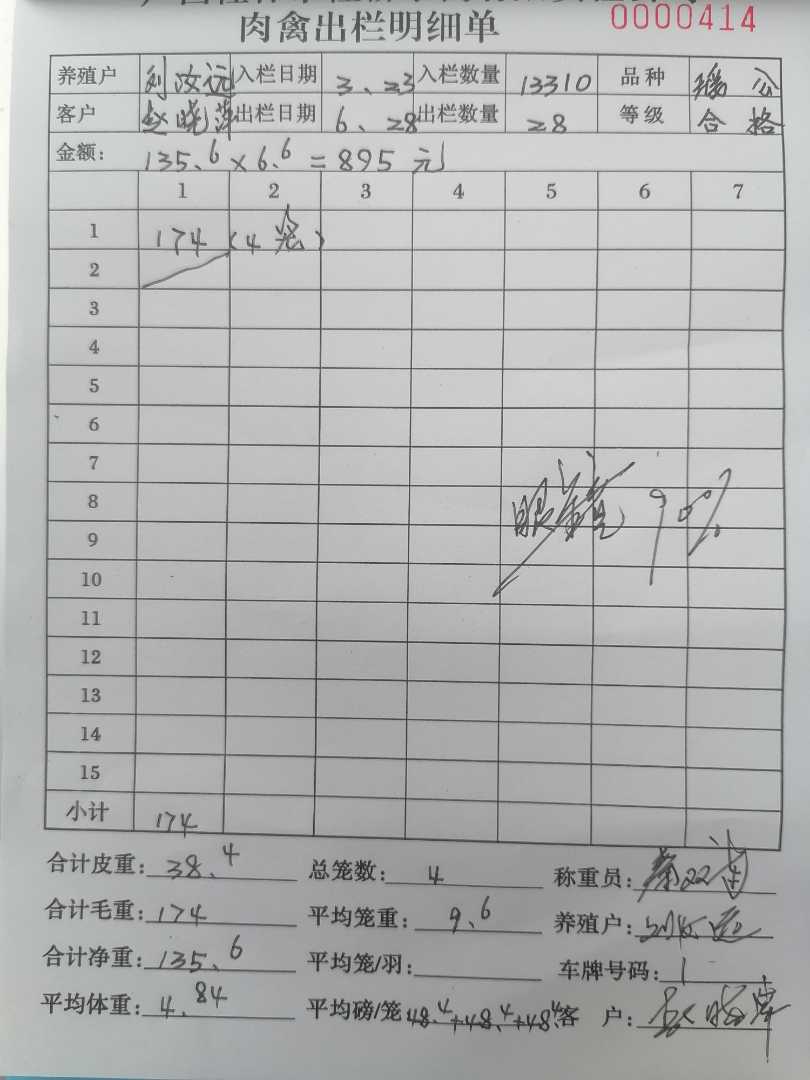 肉禽出栏明细单 0000414
养殖户 刘汝远 入栏日期 3、23 入栏数量 13310 品种 瑶公
客户 赵晓萍 出栏日期 6、28 出栏数量 28 等级 合格
金额: 135.6 × 6.6 = 895 元
1 2 3 4 5 6 7
1 174 (4笼)
2
3
4
5
6
7
8
9
10
11
12
13
14
15
小计 174
合计皮重: 38.4 总笼数: 4 称重员:
合计毛重: 174 平均笼重: 9.6 养殖户: 刘汝远
合计净重: 135.6 平均笼/羽: 车牌号码: 1
平均体重: 4.84 平均磅/笼: 48.4+48.4+48.4 客户: 赵晓萍